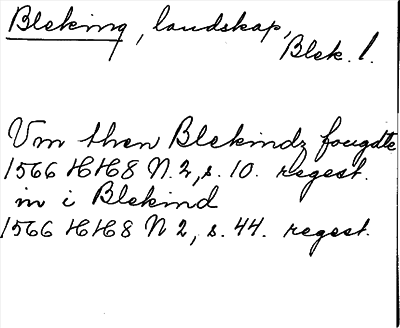 Bleking, landskap,
Blek. 1.
Vm then Blekindz fougdte
1566 HH8 N. 2, s. 10. regest.
in i Blekind
1566 HH8 N 2, s. 44. regest.